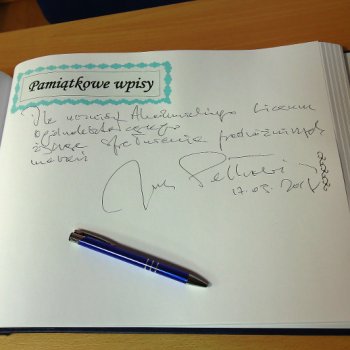 Pamiątkowe wpisy
Dla uczniów Akademickiego Liceum
Ogólnokształcącego
życzę spełnienia podróżniczych
marzeń
17.05.201